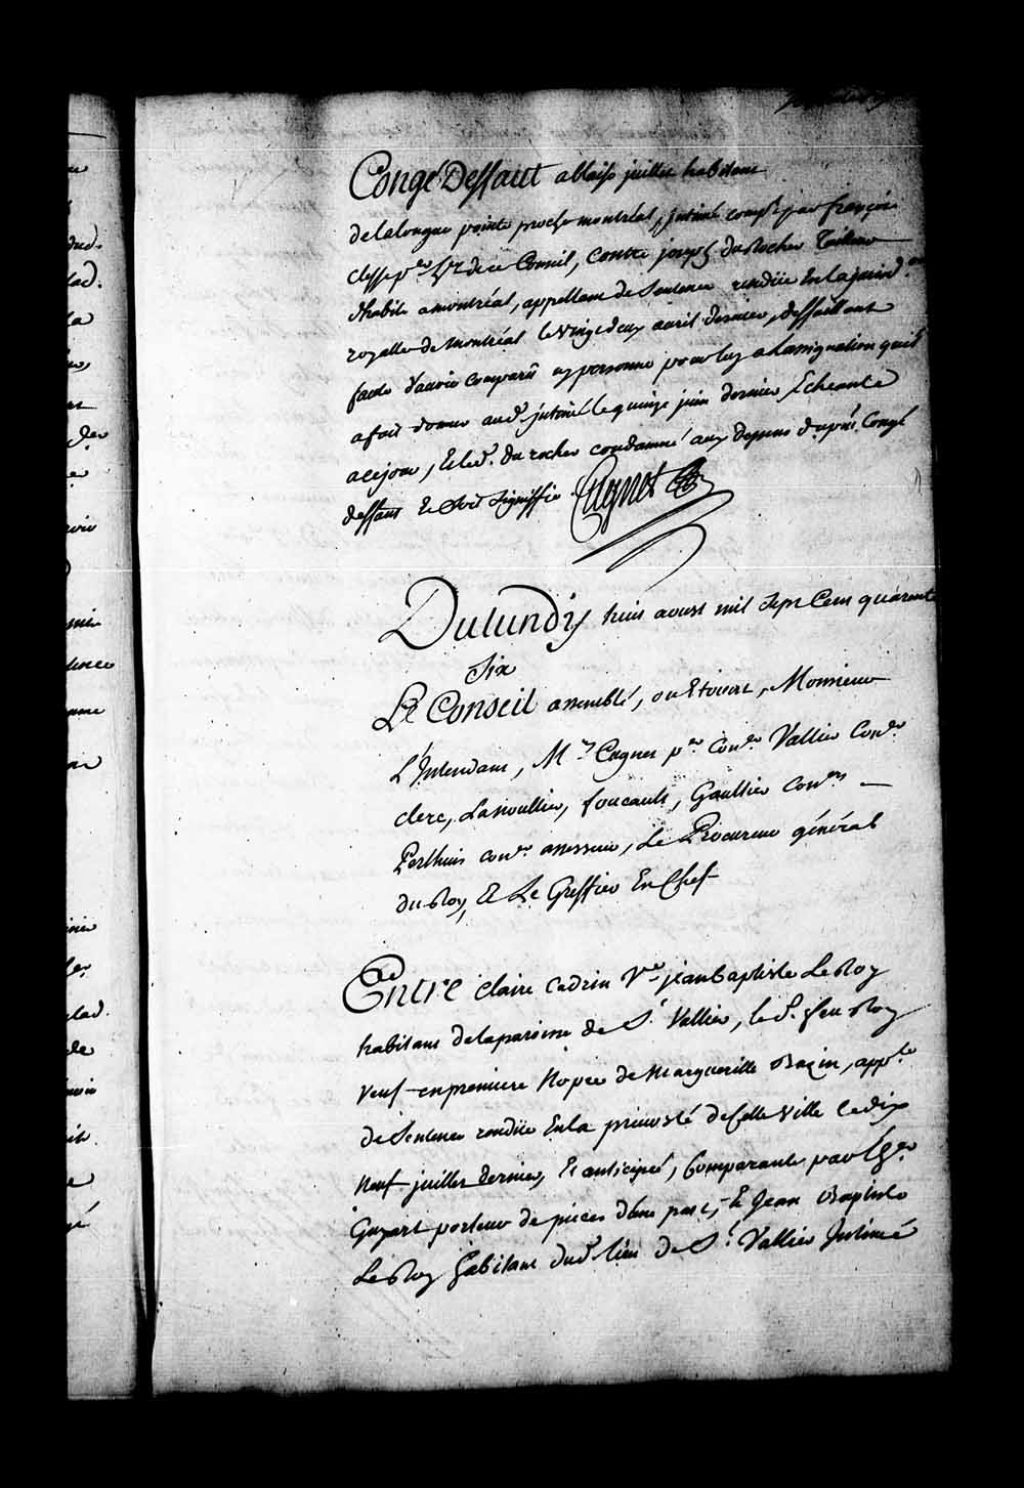 Congé Deffaut a blaise juillet habitant
de la longue pointe proche montréal, jntimé compt. par françois
clesse per hr. de ce Conseil, Contre joseph duRocher
d'habits a montréal, appellant de Sentence rendüe En la jurid.on
royalle de Montréal le vingt deux avril dernier, deffaillant
faute d'avoir comparu ny personne pour luy a L'assignation quil
a fait donner aud. jntimé le quinze juin dernier Echeante
a ce jour, Et led. du rocher condamné aux depens du pnt. Congé
deffaut Et soit signiffié Cugnet
Du lundy huit aoust mil Sept Cent quarante
Six
Le Conseil assemblé, ou Etoient, Monsieur
L'Intendant, Mrs Cugnet per Coner Vallier Coner
clerc, Lanoullier, foucault, Gaultier Coners
Perthuis coner assesseur, Le Procureur général
du Roy, Et Le Greffier En Chef
Entre claire Cadrin Ve jean baptiste LeRoy
habitant de la paroisse de St. Vallier, led. feu Roy
Veuf en premiere Nopce de Marguerille Bazin, applte
de Sentence rendüe En la prevosté de Cette Ville le dix
neuf juillet dernier, Et anticipée, Comparante par
Guyart porteur de pieces d'une part, Et Jean Baptiste
LeRoy habitant dud. lieu de St. Vallier Intimé